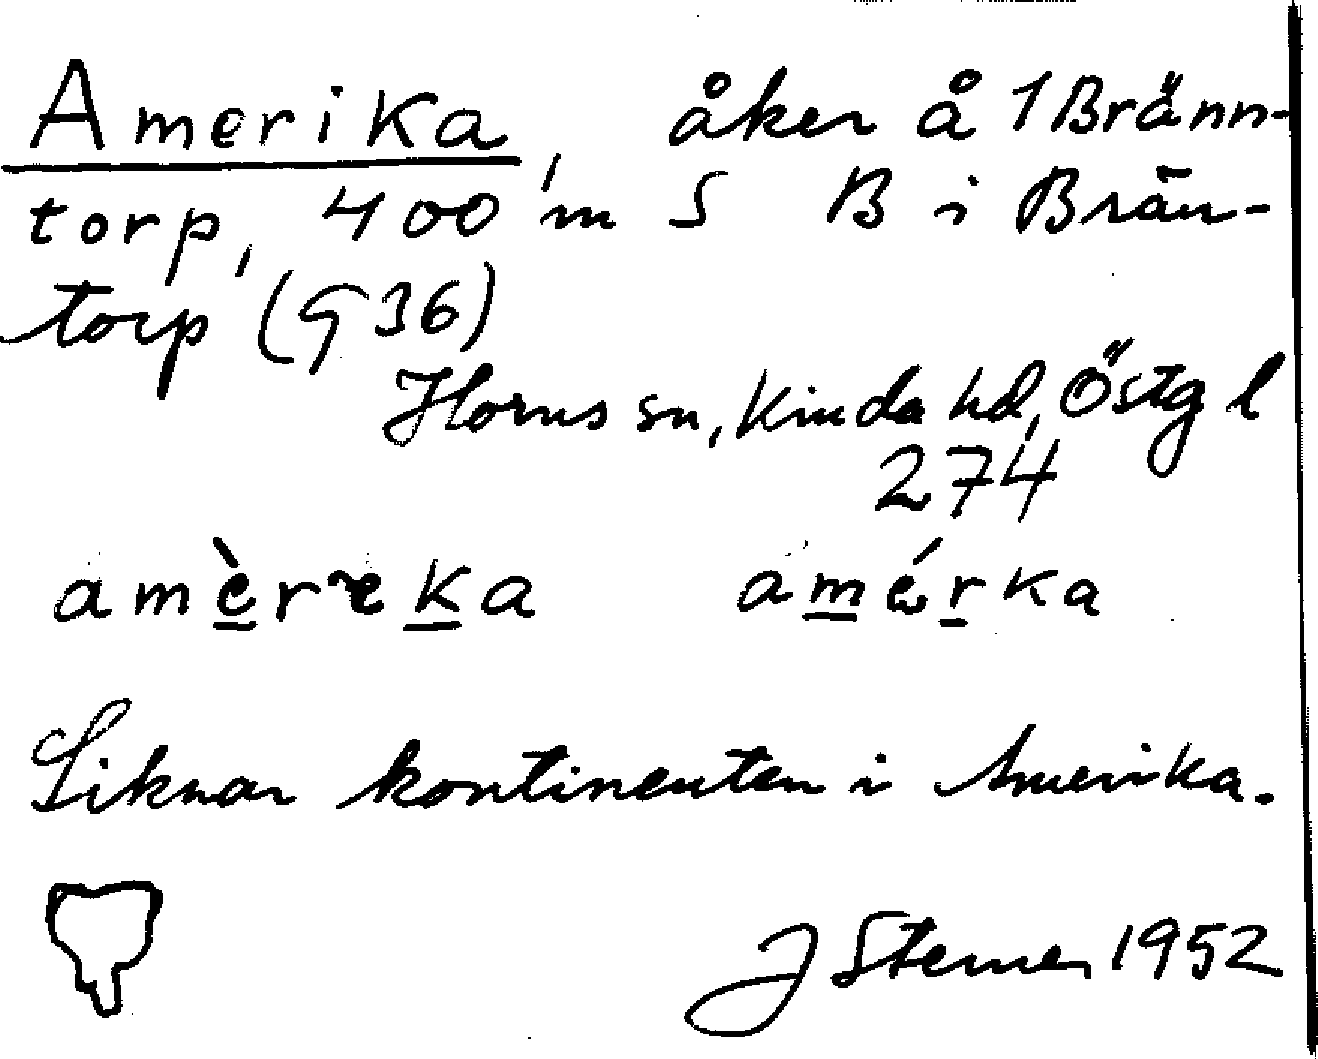 Amerika, åker å 1 Bränn-
torp, 400 m S B i Brän-
torp (G 36)
Horns sn, Kinda hd, Östg l
274
amèreka amérka
Liknar kontinenten i Amerika.
J Sterner 1952